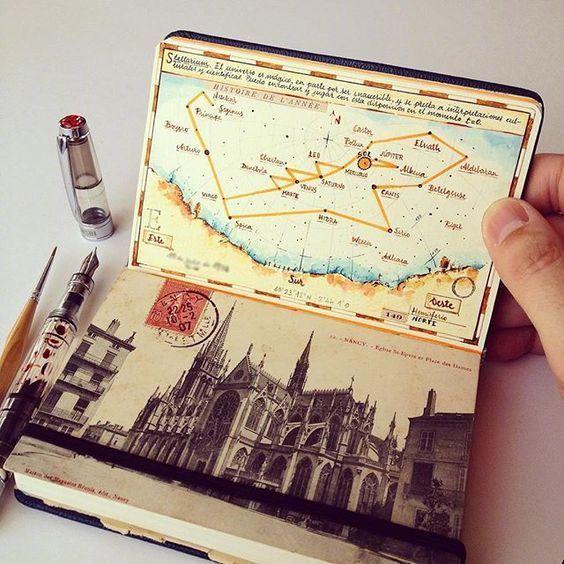 Stellarium. El universo es mágico, en parte por ser inaccesible, y se presta a interpretaciones cul-
turales y científicas. Puedo encontrar y jugar con esta disposición en el momento t=0.
HISTOIRE DE L'ANNÉE
N
Nushar
Seginus
Principe
Boyero
Arturo
Castor
Pollux
SOL
JÚPITER
Elnath
Aldebaran
Chertan
LEO
Denebola
MERCURIO
Alhena
SATURNO
VENUS
MARTE
CANIS
Betelgeuse
VIRGO
Spica
HIDRA
Sirio
Rigel
Wezen
Adhara
E
Este
Sur
Oeste
149
Hemisferio
NORTE
NANCY. - Eglise St-Epvre et Place des Dames
NANCY
22-25
10-2
07
Maison des Magasins Réunis, édit., Nancy